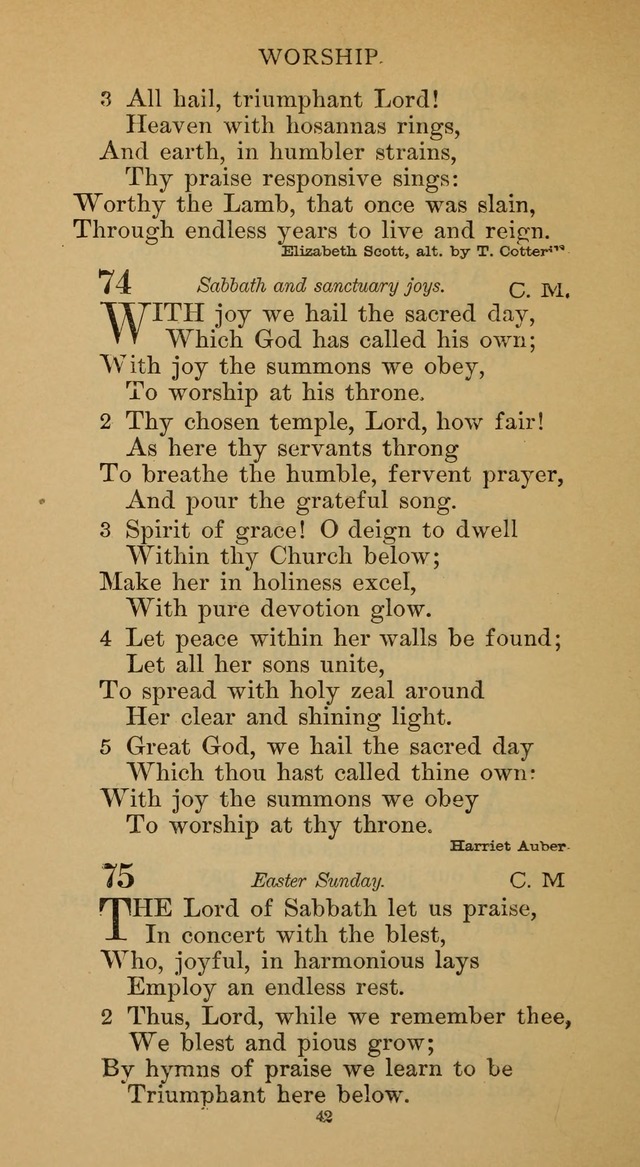 WORSHIP.
3 All hail, triumphant Lord!
Heaven with hosannas rings,
And earth, in humbler strains,
Thy praise responsive sings:
Worthy the Lamb, that once was slain,
Through endless years to live and reign.
Elizabeth Scott, alt. by T. Cotterill
74 Sabbath and sanctuary joys. C. M.
WITH joy we hail the sacred day,
Which God has called his own;
With joy the summons we obey,
To worship at his throne.
2 Thy chosen temple, Lord, how fair!
As here thy servants throng
To breathe the humble, fervent prayer,
And pour the grateful song.
3 Spirit of grace! O deign to dwell
Within thy Church below;
Make her in holiness excel,
With pure devotion glow.
4 Let peace within her walls be found;
Let all her sons unite,
To spread with holy zeal around
Her clear and shining light.
5 Great God, we hail the sacred day
Which thou hast called thine own:
With joy the summons we obey
To worship at thy throne.
Harriet Auber
75 Easter Sunday. C. M
THE Lord of Sabbath let us praise,
In concert with the blest,
Who, joyful, in harmonious lays
Employ an endless rest.
2 Thus, Lord, while we remember thee,
We blest and pious grow;
By hymns of praise we learn to be
Triumphant here below.
42